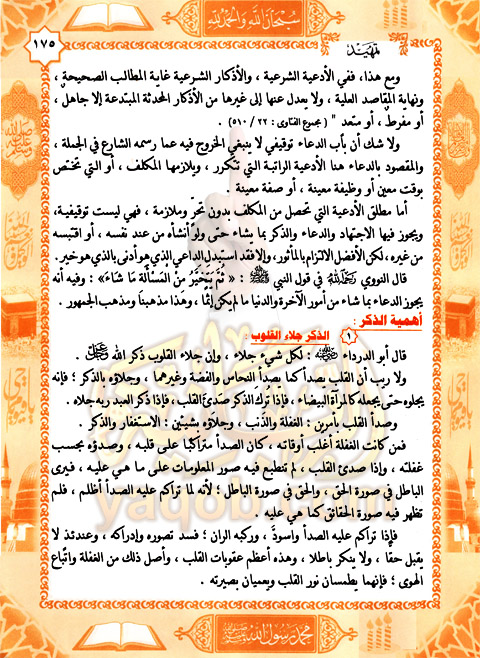 سبحان الله والحمد لله
تمهيد
١٧٥
ومع هذا، ففي الأدعية الشرعية ، والأذكار الشرعية غاية المطالب الصحيحة ،
ونهاية المقاصد العلية ، ولا يعدل عنها إلى غيرها من الأذكار المحدثة المبتدعة إلا جاهل ،
أو مفرط ، أو متعد " ( مجموع الفتاوى : ٢٢ / ٥١٠ )
ولا شك أن باب الدعاء توقيفي لا ينبغي الخروج فيه عما رسمه الشارع في الجملة ،
والمقصود بالدعاء هنا الأدعية الراتبة التي تتكرر ، ويلازمها المكلف ، أو التي تختص
بوقت معين أو وظيفة معينة ، أو صفة معينة .
أما مطلق الأدعية التي تحصل من المكلف بدون تحرّ وملازمة ، فهي ليست توقيفية،
ويجوز فيها الاجتهاد والدعاء والذكر بما يشاء حتى ولو أنشأه من عند نفسه ، أو اقتبسه
من غيره، لكن الأفضل الالتزام بالمأثور، وإلا فقد استبدل الداعي الذي هو أدنى بالذي هو خير .
قال النووي رحمه الله في قول النبي ﷺ : « ثُمَّ يَتَخَيَّرُ مِنَ الْمَسْأَلَةِ مَا شَاءَ» : وفيه أنه
يجوز الدعاء بما شاء من أمور الآخرة والدنيا ما لم يكن إثما ، وهذا مذهبنا ومذهب الجمهور .
أهمية الذكر :
١ الذكر جلاء القلوب :
قال أبو الدرداء ﷺ : لكل شيء جلاء ، وإن جلاء القلوب ذكر الله ﷻ .
ولا ريب أن القلب يصدأ كما يصدأ النحاس والفضة وغيرهما ، وجلاؤه بالذكر ؛ فإنه
يجلوه حتى يجعله كالمرآة البيضاء ، فإذا تُرك الذكر صدئ القلب، فإذا ذكر العبد ربه جلاه .
وصدأ القلب بأمرين : الغفلة والذَّنب ، وجلاؤه بشيئين : الاستغفار والذكر .
فمن كانت الغفلة أغلب أوقاته ، كان الصدأ متراكبًا على قلبه ، وصدؤه بحسب
غفلته ، وإذا صدئ القلب ، لم تنطبع فيه صور المعلومات على ما هي عليه ، فيرى
الباطل في صورة الحق ، والحق في صورة الباطل ؛ لأنه لما تراكم عليه الصدأ أظلم ، فلم
تظهر فيه صورة الحقائق كما هي عليه .
فإذا تراكم عليه الصدأ واسودّ ، وركبه الران ؛ فسد تصوره وإدراكه ، وعندئذ لا
يقبل حقًا ، ولا ينكر باطلا ، وهذه أعظم عقوبات القلب ، وأصل ذلك من الغفلة واتّباع
الهوى ؛ فإنهما يطمسان نور القلب ويعميان بصيرته .
محمد رسول الله